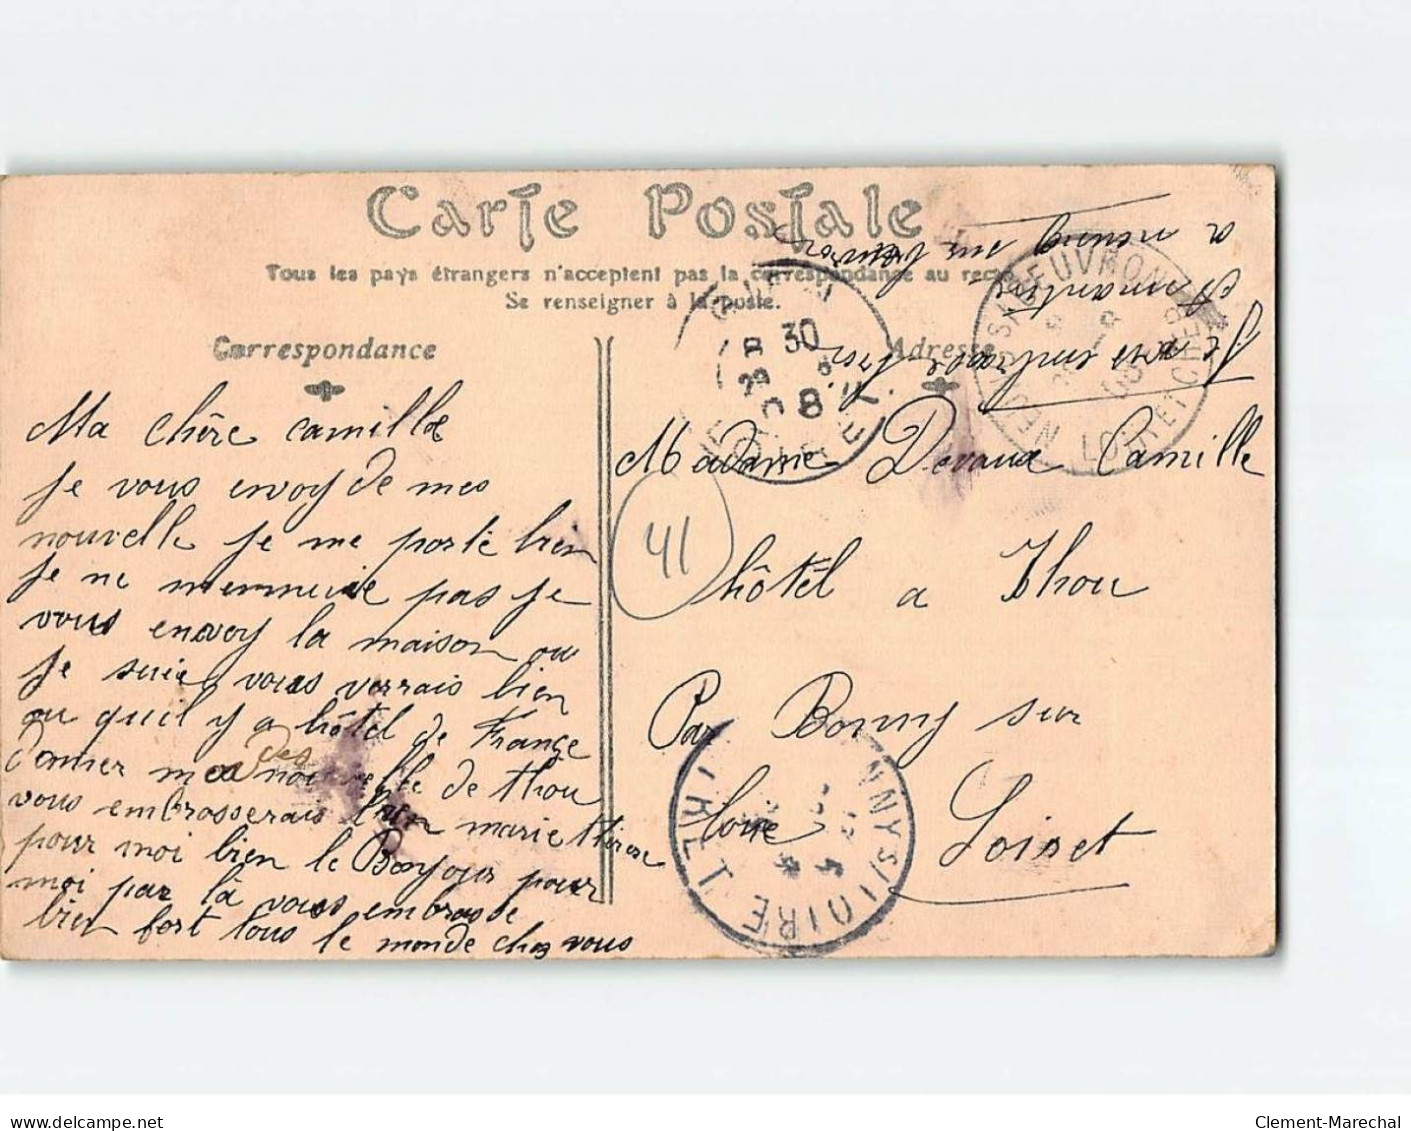 Carte Postale
Tous les pays étrangers n'acceptent pas la correspondance au recto
Se renseigner à la poste.
Correspondance
Adresse
Ma chère camille
je vous envoy de mes
nouvelle je me porte bien
je ne mennuie pas je
vous envoy la maison ou
je suie vous verrais bien
ou quil y a hôtel de France
donner mes des nouvelle de thou
vous embrasserais bien marie thérèse
pour moi bien le Bonjour pour
moi par là vous embrasse
bien fort tous le monde chez vous
Madame Devaux Camille
hôtel a Thou
Par Bonny sur
loire Loiret
41
NEUNG S/ BEUVRON
LOIR ET CHER
8 30
29 8
08
BONNY S/ LOIRE
LOIRET
www.delcampe.net
Clement-Marechal